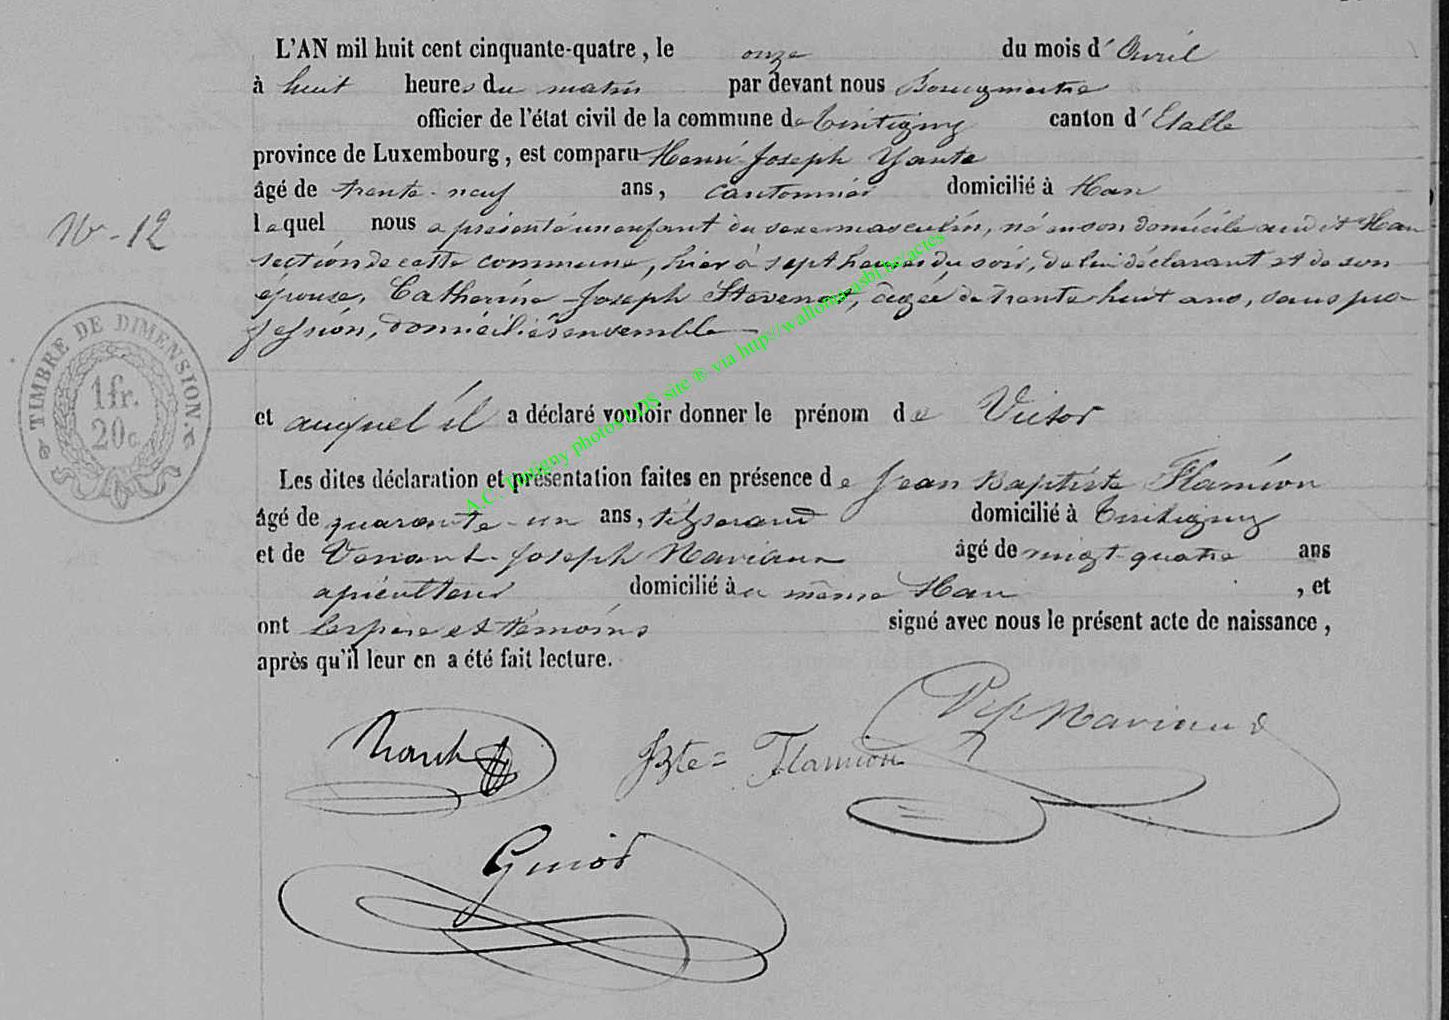 L'AN mil huit cent cinquante-quatre, le onze du mois d'Avril
à huit heures du matin par devant nous Bourgmestre
officier de l'état civil de la commune de Tintigny canton d'Etalle
province de Luxembourg, est comparu Henri Joseph Yante
âgé de trente-neuf ans, cantonnier domicilié à Han
lequel nous a présenté un enfant du sexe masculin, né en son domicile audit Han
No - 12
section de cette commune, hier à sept heures du soir, de lui déclarant et de son
épouse, Catherine Joseph Stevenot, âgée de trente huit ans, sans pro-
fession, domiciliés ensemble
TIMBRE DE DIMENSION.
1fr.
20c.
et auquel il a déclaré vouloir donner le prénom de Victor
Les dites déclaration et présentation faites en présence de Jean Baptiste Flamion
âgé de quarante-un ans, tisserand domicilié à Tintigny
et de Venant Joseph Naviaux âgé de vingt-quatre ans
apiculteur domicilié à même Han, et
ont les père et témoins signé avec nous le présent acte de naissance,
après qu'il leur en a été fait lecture.
JBte = Flamion
Guiot
A.C. Tintigny photos LDS site ® via http://wallonia-asbl.be/actes